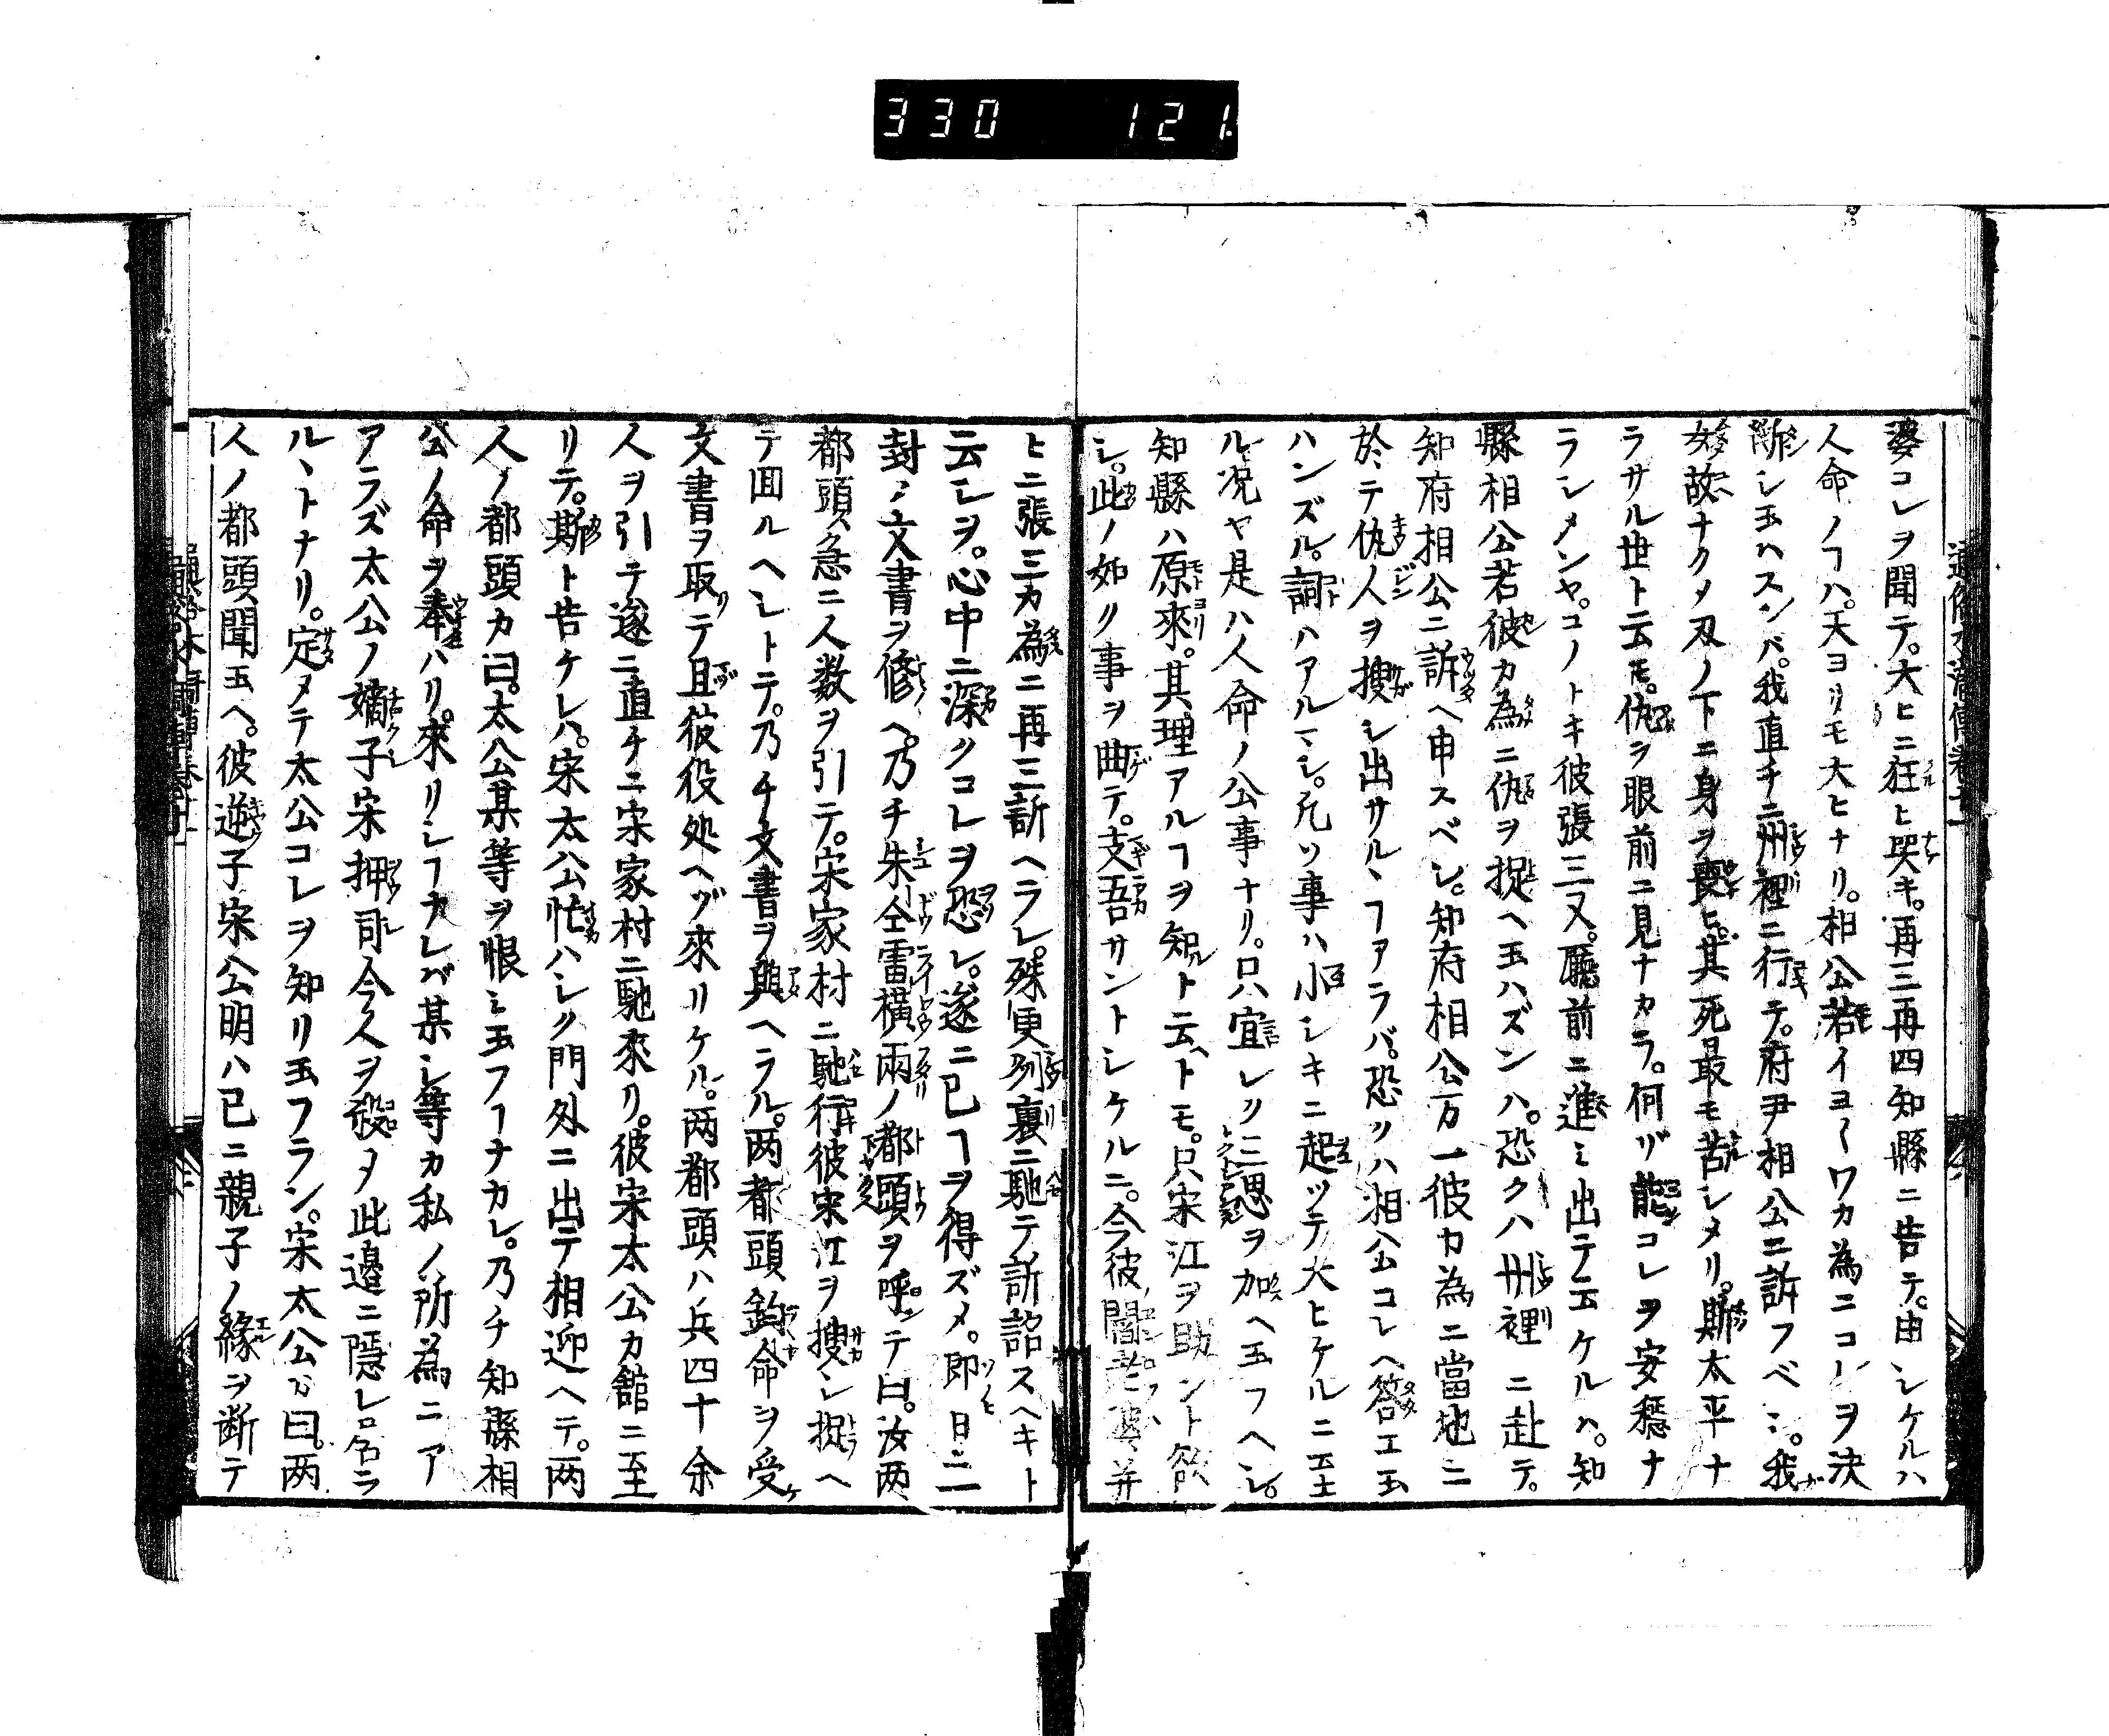 330 121
婆コレヲ聞テ。大ヒニ狂ヒ哭キ。再三再四知縣ニ告テ。申シケルハ
人命ノヿハ。天ヨリモ大ヒナリ。相公若イヨ〳〵ワカ為ニコレヲ決
断シ玉ハスンバ。我直チニ州裡ニ行テ。府尹相公ニ訴フベシ。我
女故ナクメ刄ノ下ニ身ヲ喪ヒ。其死最モ苦シメリ。斯太平ナ
ラサル世ト云モ。仇ヲ眼前ニ見ナカラ。何ゾ能コレヲ安穏ナ
ラシメンヤ。コノトキ彼張三又。廳前ニ進ミ出テ云ケルハ。知
縣相公若彼カ為ニ仇ヲ捉ヘ玉ハズンハ。恐クハ州裡ニ赴テ。
知府相公ニ訴ヘ申スベシ。知府相公万一彼カ為ニ當地ニ
於テ仇人ヲ搜シ出サルヽヿアラバ。恐クハ相公コレヘ答エ玉
ハンズル。詞ハアルマシ。凡ソ事ハ小シキニ起ツテ大ヒケルニ至
ル况ヤ是ハ人命ノ公事ナリ。只宜シク三思ヲ加ヘ玉フヘシ。
知縣ハ原來。其理アルヿヲ知ト云ヘトモ。只宋江ヲ助ント欲
シ。此ノ如ク事ヲ曲テ。支吾サントシケルニ。今彼閻老婆并
ヒニ張三カ為ニ再三訴ヘラレ。殊更州裏ニ馳テ訴詔スヘキト
云シヲ。心中ニ深クコレヲ恐レ。遂ニ已ヿヲ得ズメ。即日ニ二
封ノ文書ヲ修ヘ。乃チ朱仝雷横兩ノ都頭ヲ呼テ曰。汝两
都頭急ニ人数ヲ引テ。宋家村ニ馳行彼宋江ヲ搜シ捉ヘ
テ囬ルヘシトテ。乃チ文書ヲ與ヘラル。两都頭鈞命ヲ受
文書ヲ取テ且彼役処ヘゾ來リケル。两都頭ハ兵四十余
人ヲ引テ遂ニ直チニ宋家村ニ馳來リ。彼宋太公カ舘ニ至
リテ。斯ト告ケレハ。宋太公忙ハシク門外ニ出テ相迎ヘテ。两
人ノ都頭カ曰。太公某等ヲ恨ミ玉フヿナカレ。乃チ知縣相
公ノ命ヲ奉ハリ。來リシヿナレバ某シ等カ私ノ所為ニア
アラズ太公ノ嫡子宋押司今人ヲ殺メ此邉ニ隠レ
ルヽトナリ。定メテ太公コレヲ知リ玉フラン。宋太公カ曰。两
人ノ都頭聞玉ヘ。彼逆子宋公明ハ已ニ親子ノ縁ヲ断テ